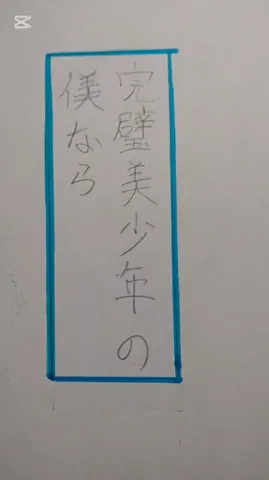 完璧美少年の
僕なら